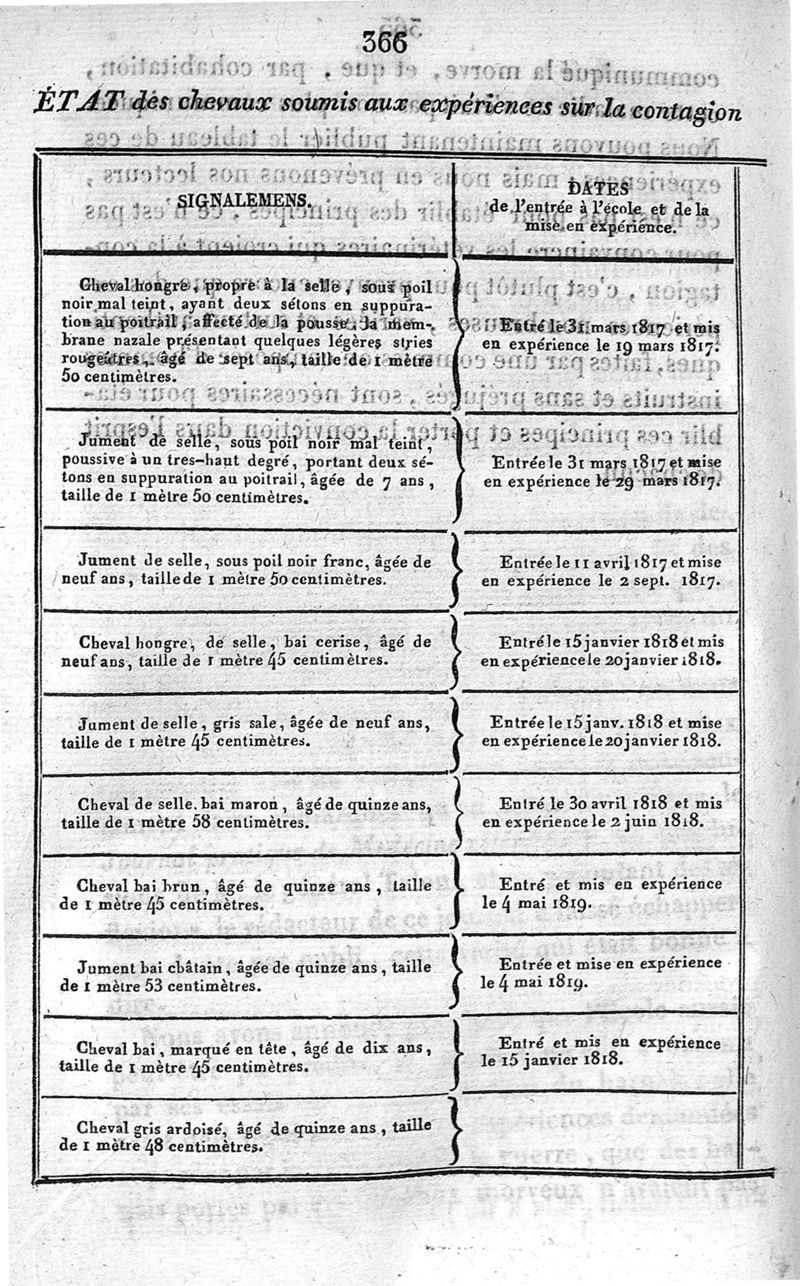 366
ÉTAT des chevaux soumis aux expériences sur la contagion
SIGNALEMENS.
DATES
de l'entrée à l'école et de la
mise en expérience.
Cheval hongre, propre à la selle, sous poil
noir mal teint, ayant deux sétons en suppura-
tion au poitrail, affecté de la pousse, la mem-
brane nazale présentant quelques légères stries
rougeâtres, âgé de sept ans, taille de 1 mètre
50 centimètres.
Entré le 31 mars 1817 et mis
en expérience le 19 mars 1817.
Jument de selle, sous poil noir mal teint,
poussive à un tres-haut degré, portant deux sé-
tons en suppuration au poitrail, âgée de 7 ans,
taille de 1 mètre 50 centimètres.
Entrée le 31 mars 1817 et mise
en expérience le 29 mars 1817.
Jument de selle, sous poil noir franc, âgée de
neuf ans, taille de 1 mètre 50 centimètres.
Entrée le 11 avril 1817 et mise
en expérience le 2 sept. 1817.
Cheval hongre, de selle, bai cerise, âgé de
neuf ans, taille de 1 mètre 45 centimètres.
Entré le 15 janvier 1818 et mis
en expérience le 20 janvier 1818.
Jument de selle, gris sale, âgée de neuf ans,
taille de 1 mètre 45 centimètres.
Entrée le 15 janv. 1818 et mise
en expérience le 20 janvier 1818.
Cheval de selle, bai maron, âgé de quinze ans,
taille de 1 mètre 58 centimètres.
Entré le 30 avril 1818 et mis
en expérience le 2 juin 1818.
Cheval bai brun, âgé de quinze ans, taille
de 1 mètre 45 centimètres.
Entré et mis en expérience
le 4 mai 1819.
Jument bai châtain, âgée de quinze ans, taille
de 1 mètre 53 centimètres.
Entrée et mise en expérience
le 4 mai 1819.
Cheval bai, marqué en tête, âgé de dix ans,
taille de 1 mètre 45 centimètres.
Entré et mis en expérience
le 15 janvier 1818.
Cheval gris ardoisé, âgé de quinze ans, taille
de 1 mètre 48 centimètres.